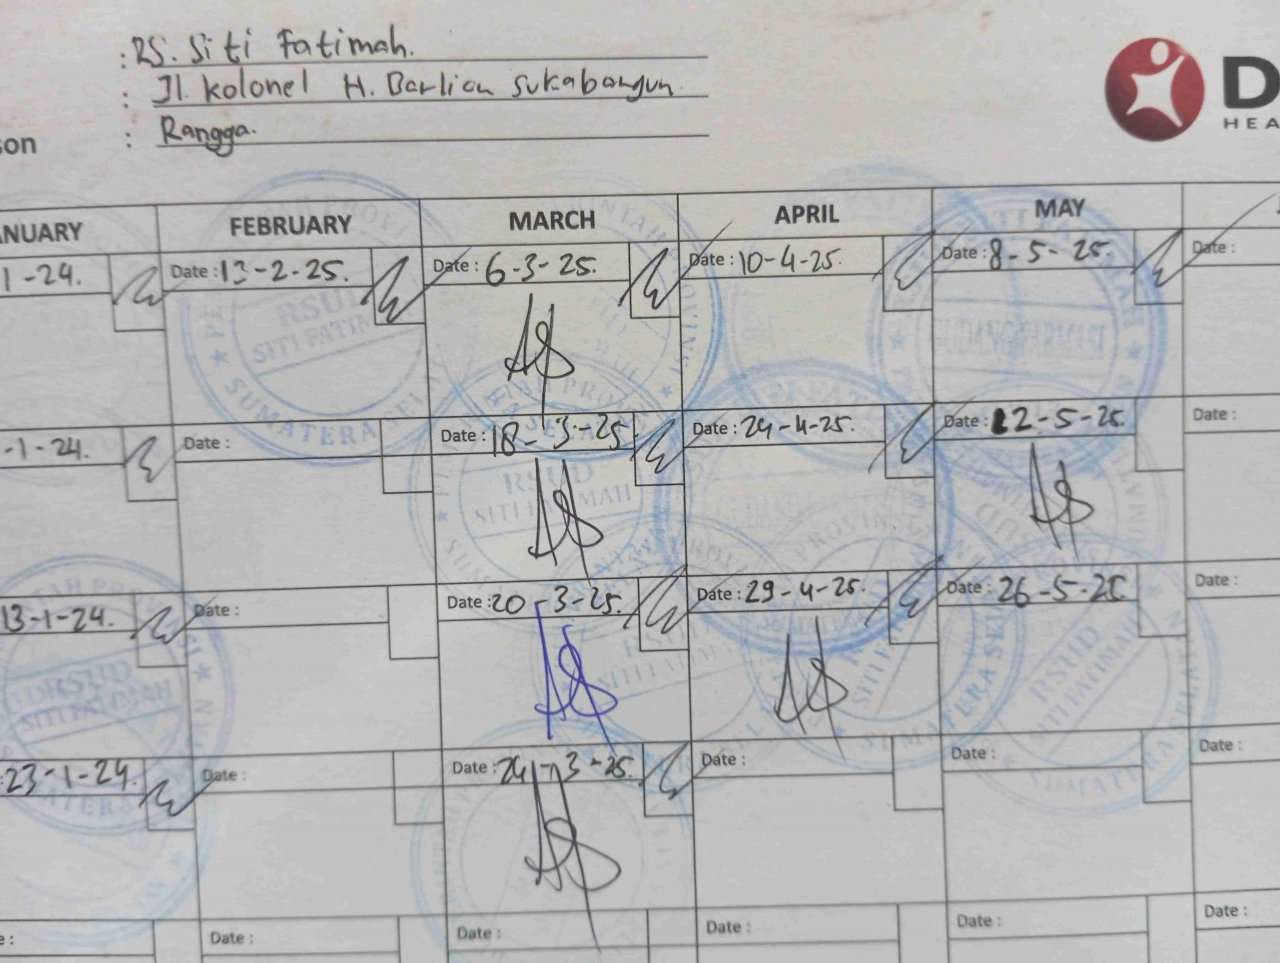 : RS. Siti Fatimah.
: Jl. Kolonel H. Barlian Sukabangun.
son : Rangga.
D
HEA
NUARY FEBRUARY MARCH APRIL MAY
1-24. Date : 13-2-25. Date : 6-3-25. Date : 10-4-25. Date : 8-5-25. Date :
RSUD
SITI FATIMAH
SUMATERA SEL
-1-24. Date : Date : 18-3-25 Date : 24-4-25. Date : 22-5-25. Date :
RSUD
SITI FATIMAH
13-1-24. Date : Date : 20-3-25. Date : 29-4-25. Date : 26-5-25 Date :
RSUD
SITI FATIMAH
RSUD
SITI FATIMAH
SUMATERA SEL
23-1-24. Date : Date : 24-3-25. Date : Date : Date :
e : Date : Date : Date : Date : Date :